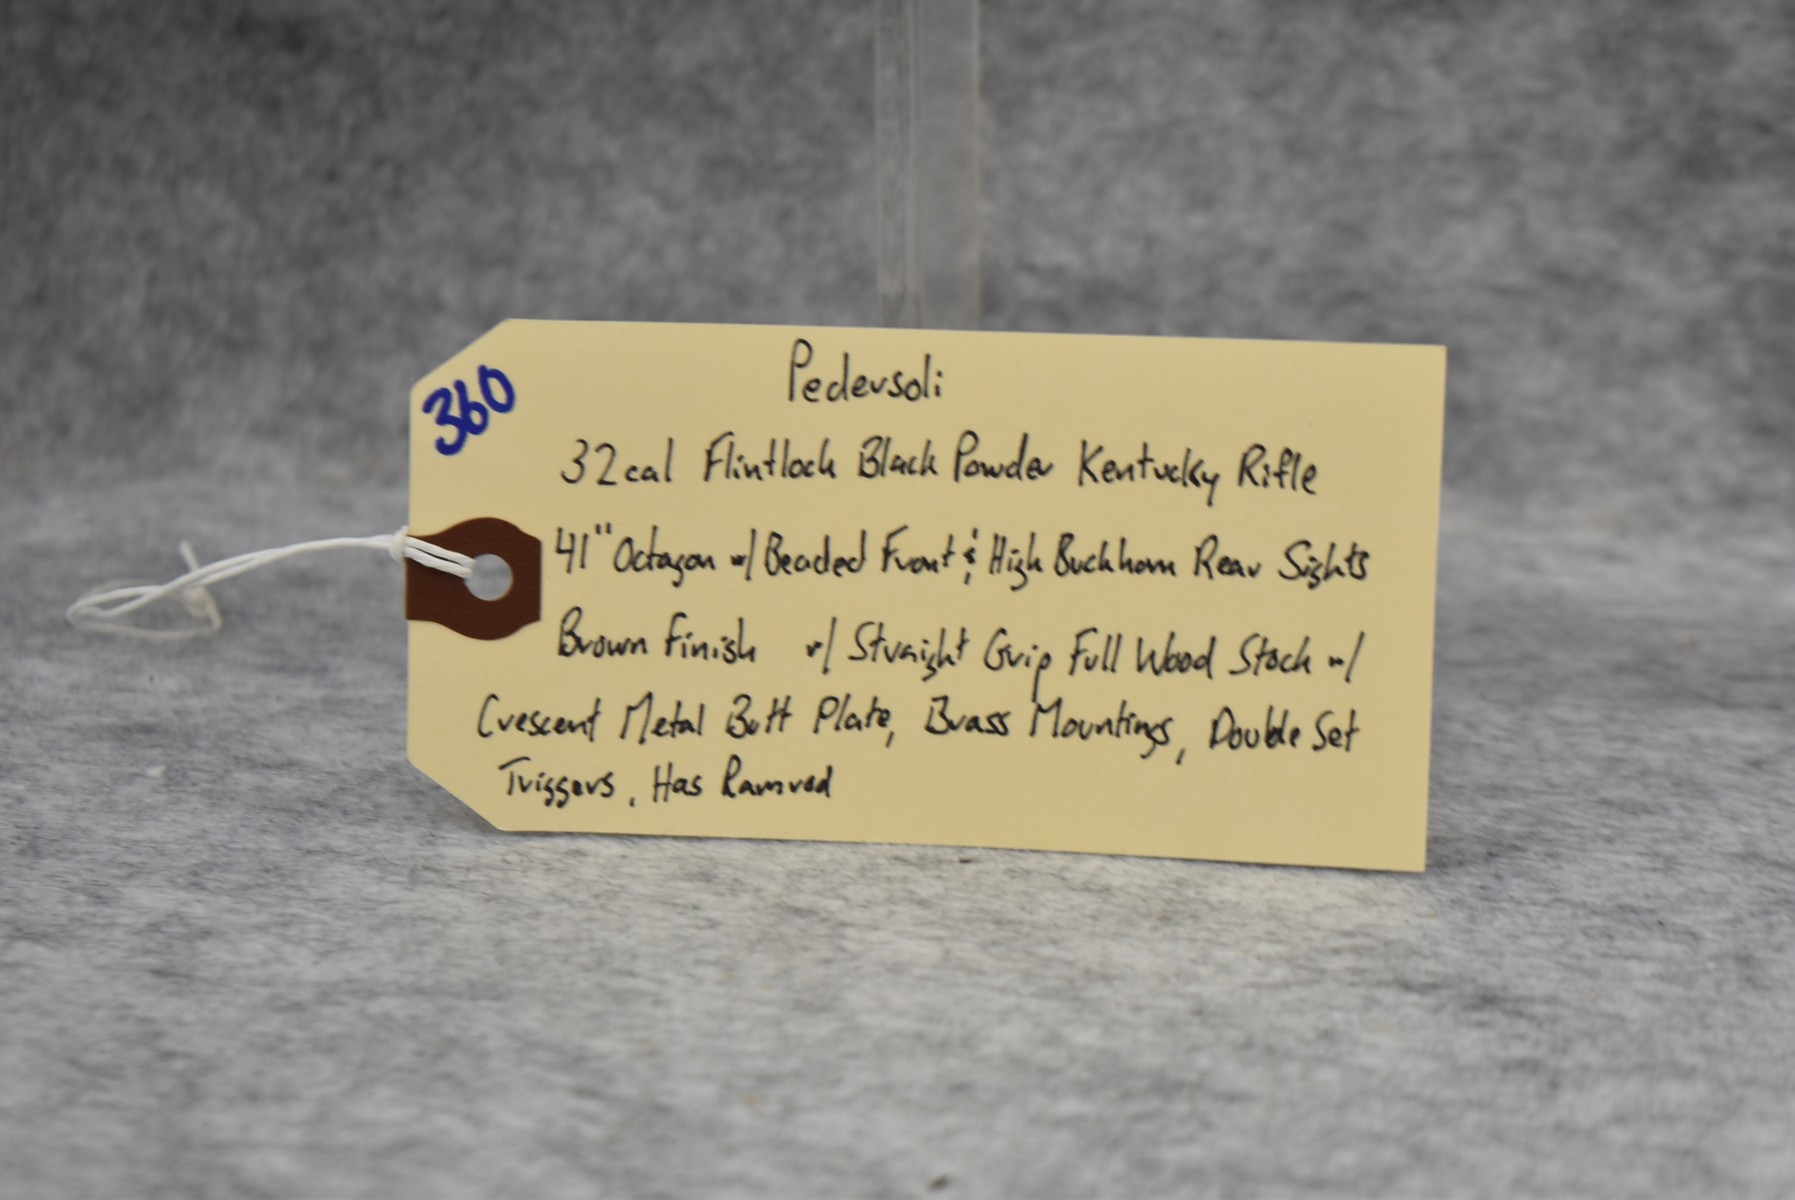 360
Pedersoli
32cal Flintlock Black Powder Kentucky Rifle
41" Octagon w/ Beaded Front & High Buckhorn Rear Sights
Brown Finish w/ Straight Grip Full Wood Stock w/
Crescent Metal Butt Plate, Brass Mountings, Double Set
Triggers, Has Ramrod